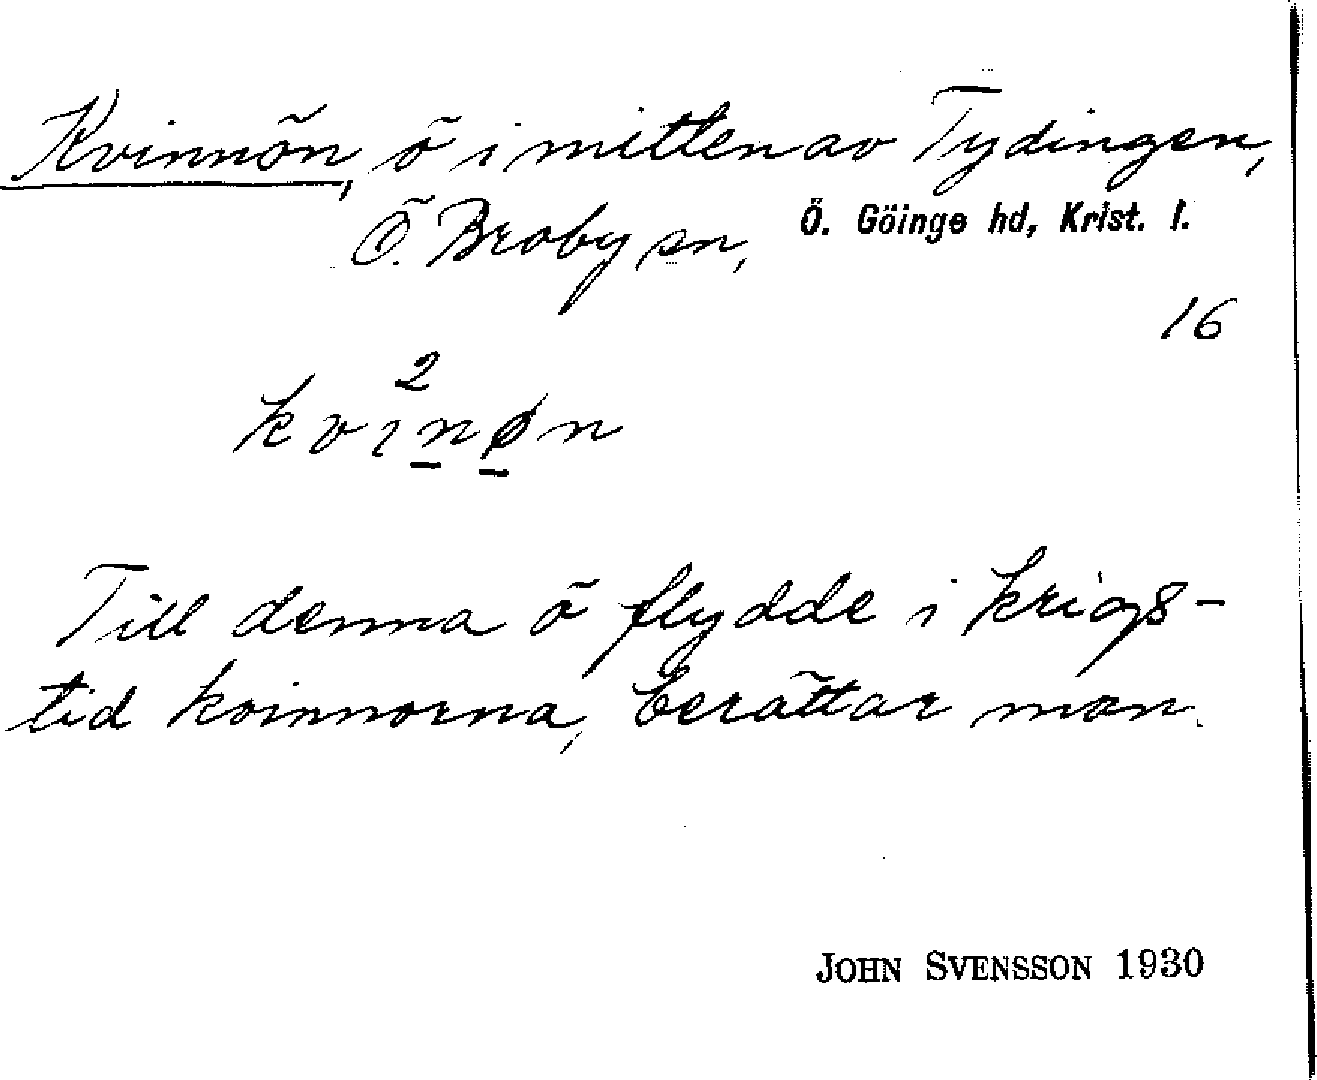 Kvinnön, ö i mitten av Tydingen,
Ö. Broby sn, Ö. Göinge hd, Krist. l.
16
2
kvinøn
Till denna ö flydde i krigs-
tid kvinnorna, berättar man.
JOHN SVENSSON 1930